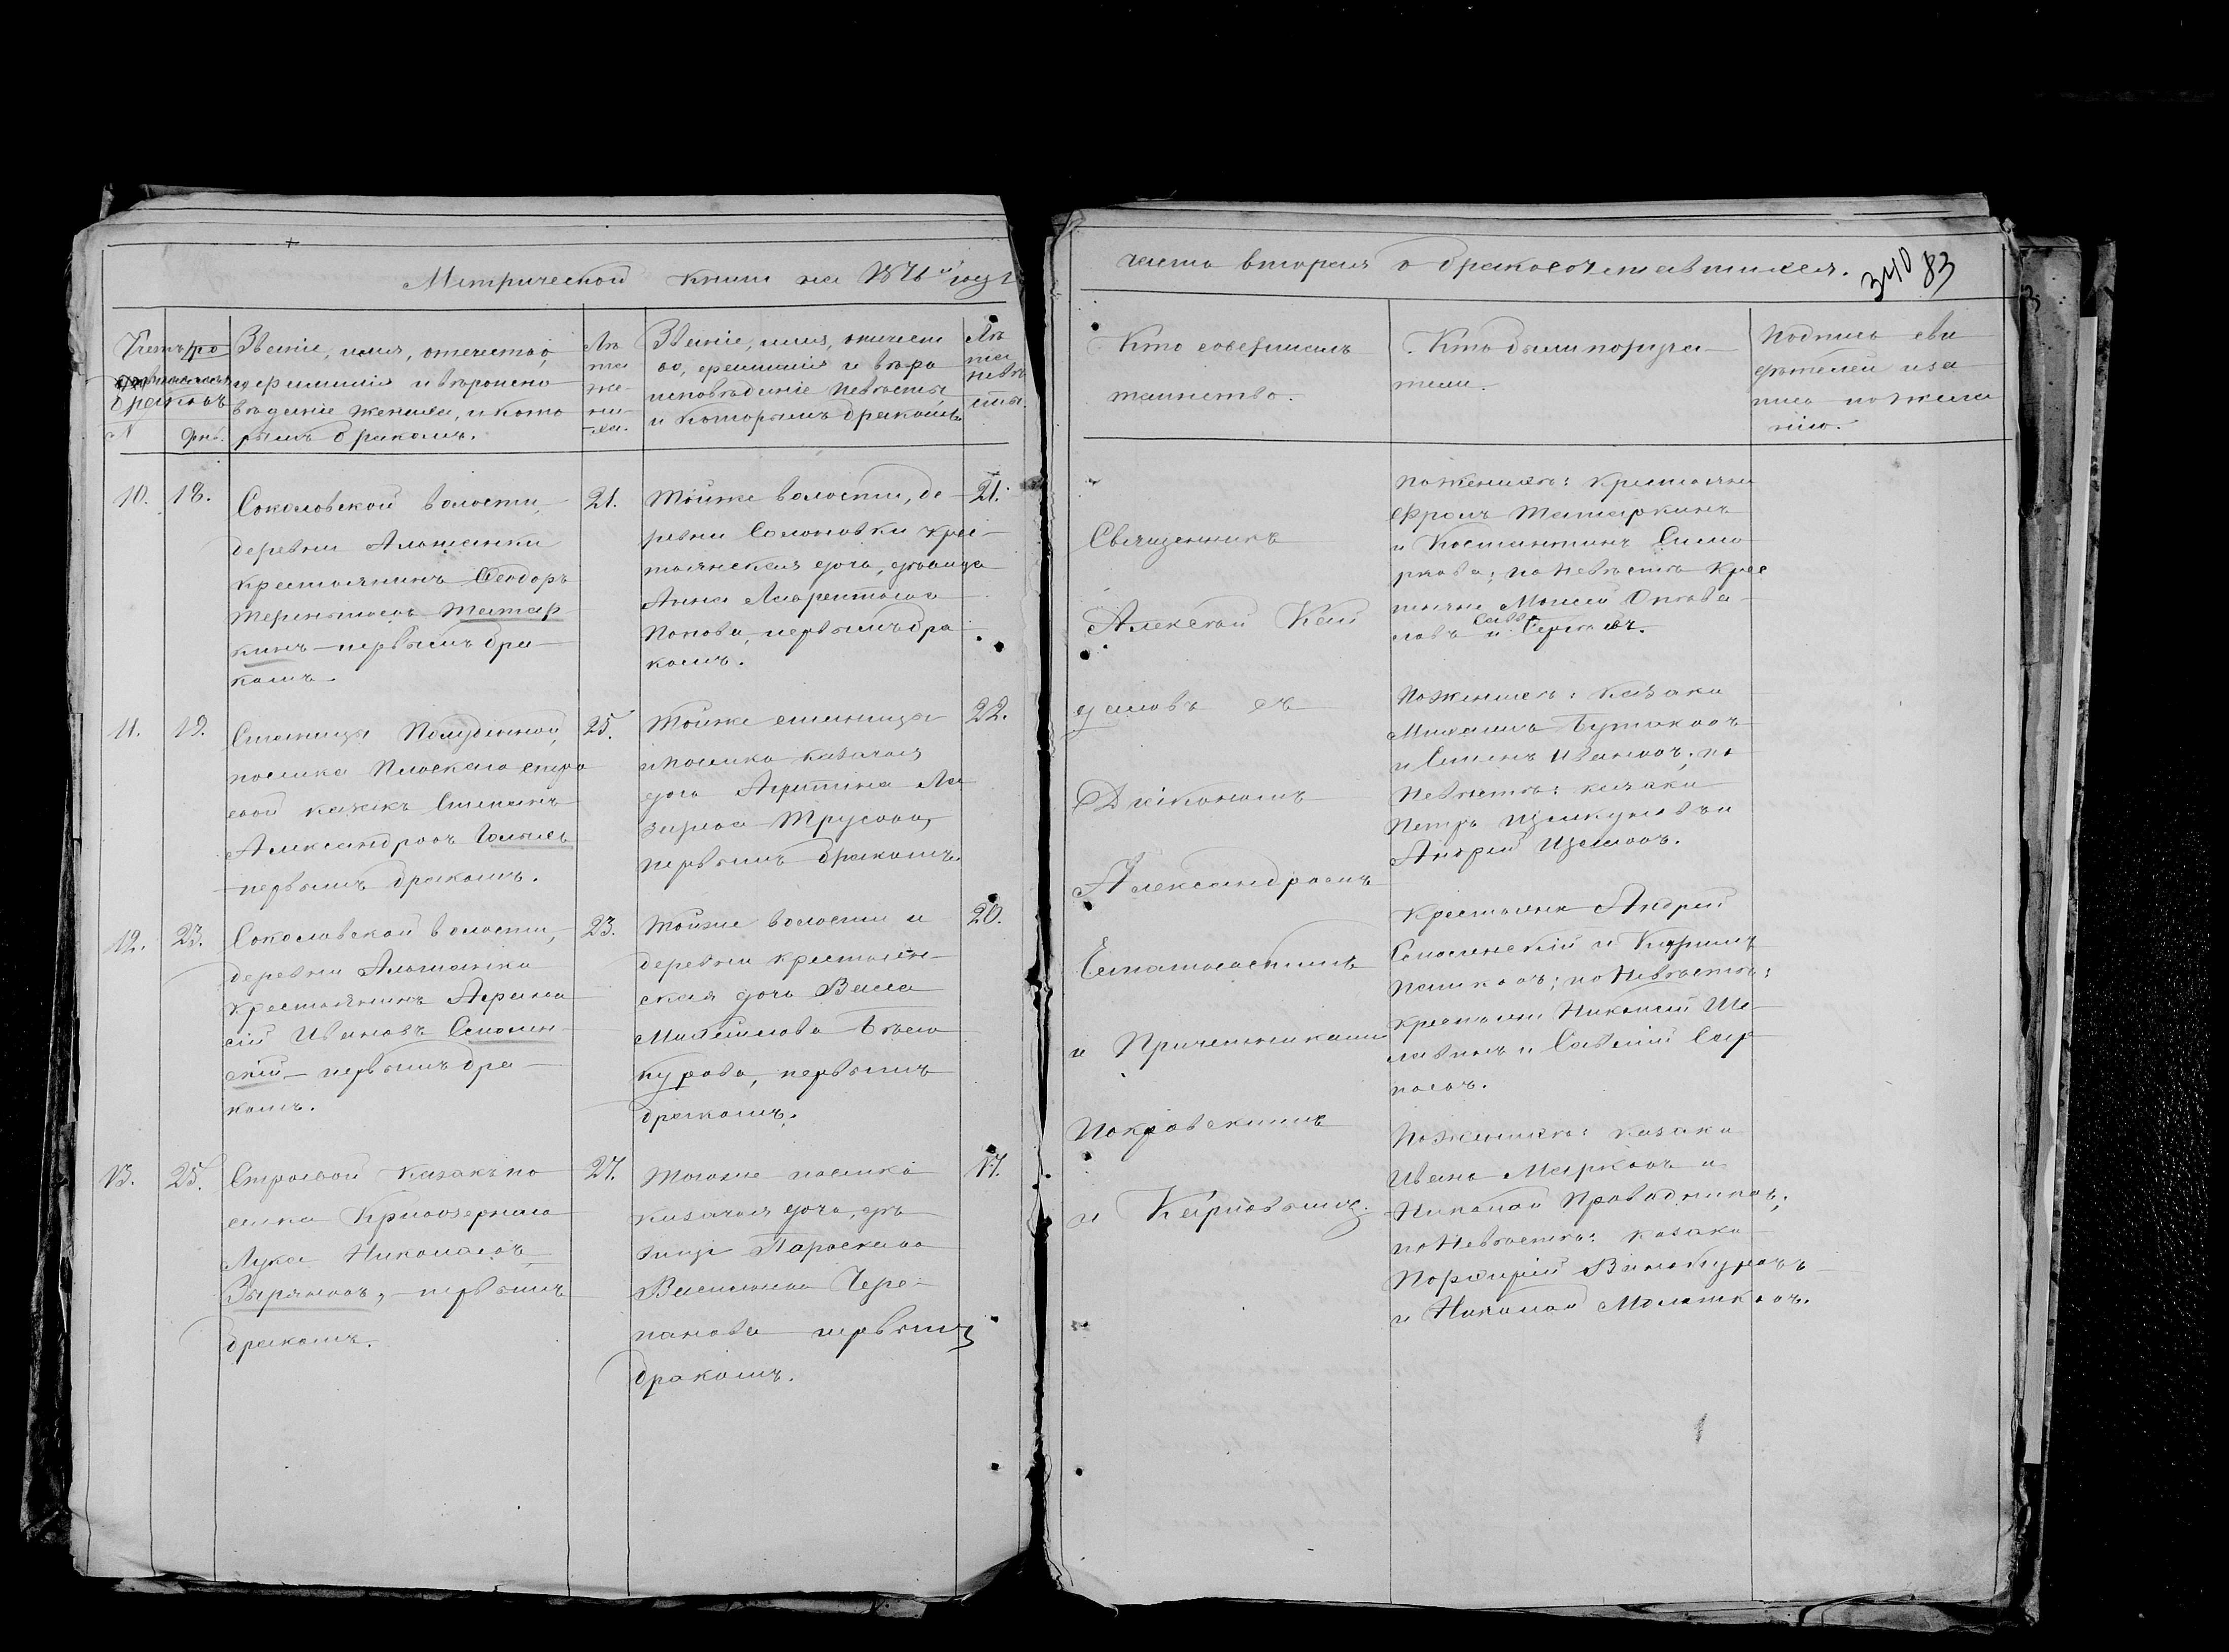 Метрической книги на 1871й годъ
Счетъ
браковъ
№
Дни.
Званіе, имя, отечество,
фамилія и вѣроиспо
вѣданіе жениха, и кото
рымъ бракомъ.
Лѣ
та
же-
ни-
ха.
Званіе, имя, отчест
во, фамилія и вѣро
исповѣданіе невѣсты
и которымъ бракомъ
Лѣ
та
невѣ
сты.
10.
18.
Соколовской волости,
деревни Альшанки
крестьянинъ Ѳеодоръ
Терентьевъ Татар
кинъ – первымъ бра-
комъ.
21.
Тойже волости, де-
ревни Соломовки крес-
тьянская дочь, дѣвица
Анна Лаврентьева
Попова, первымъ бра
комъ.
21.
11.
19.
Станицы Полуденной,
поселка Плоскаго стро
евой казакъ Степанъ
Александровъ
– первымъ бракомъ.
25.
Тойже станицы
и поселка казачья
дочь Агрипина Ла
зарева Трусова,
первымъ бракомъ.
22.
12.
23.
Соколовской волости,
деревни Альшанки
крестьянинъ Аѳана
сій Ивановъ Смолен-
скій – первымъ бра-
комъ.
23.
Тойже волости и
деревни крестьян-
ская дочь Васса
Михайлова Бѣло
курова, первымъ
бракомъ.
20.
13.
25.
Строевой казакъ по
селка Кривоозернаго
Лука Николаевъ
Зыряновъ, – первымъ
бракомъ.
27.
Тогоже поселка
казачья дочь, дѣ
вица Параскева
Васильева Чере-
панова первымъ
бракомъ.
17.
часть вторая о бракосочетавшихся.
340 83
Кто совершалъ
таинство.
Кто были поручи-
тели.
Подпись сви
дѣтелей иза
пись по жела
нію.
Священникъ
Алексѣй
съ
Діакономъ
Александромъ
и Причетниками
Покровскимъ
и Карповымъ.
По женихѣ: крестьяне
Фролъ Татаркинъ
и Костантинъ
по невѣстѣ крес
тьяне Моисей
и
По женихѣ: казаки
Михаилъ Бутаковъ
и Семенъ Ивановъ, по
невѣстѣ: казаки
Петръ
Андрей
Крестьяне Андрей
Смоленскій и Кирилъ
Пашковъ; по невѣстѣ:
крестьяне Николай Ше-
лавинъ и Савелій
По женихѣ: казаки
Иванъ Марковъ и
Николай Проводниковъ;
по невѣстѣ: казаки
Порфирій Винокуровъ
и Николай Молотковъ.